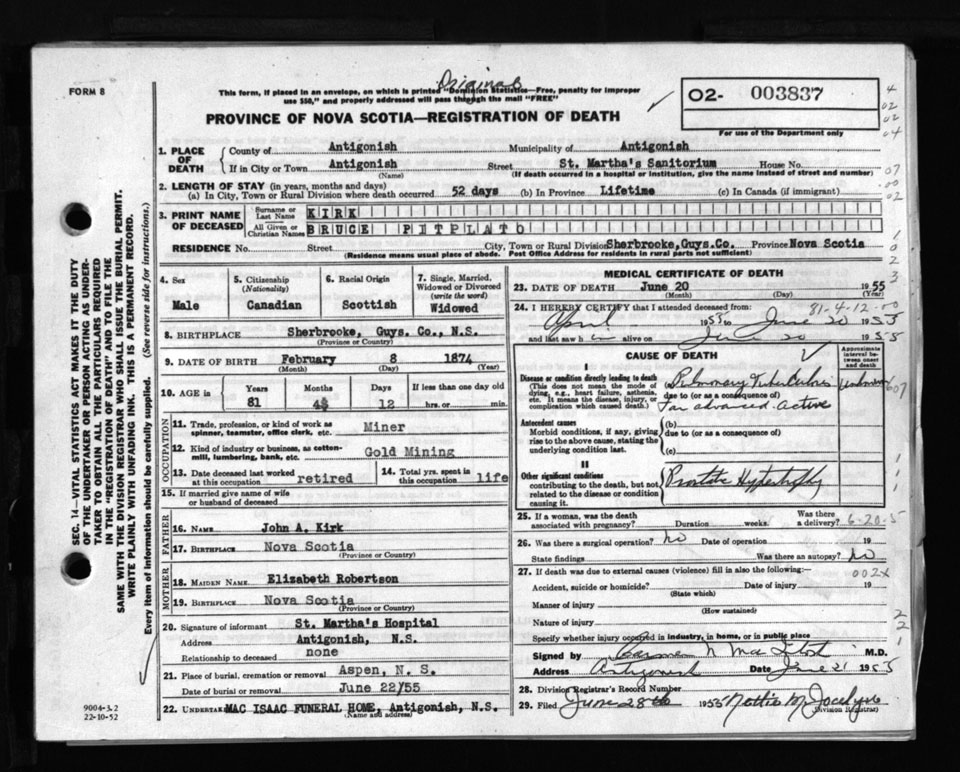 Original
FORM 8
This form, if placed in an envelope, on which is printed "Dominion Statistics—Free, penalty for improper
use $50," and properly addressed will pass through the mail "FREE"
PROVINCE OF NOVA SCOTIA—REGISTRATION OF DEATH
O2- 003837
For use of the Department only
4
02
02
04
07
00
02
1
0
2
3
1. PLACE OF DEATH
County of Antigonish Municipality of Antigonish
If in City or Town Antigonish Street St. Martha's Sanitorium House No.
(Name) (If death occurred in a hospital or institution, give the name instead of street and number)
2. LENGTH OF STAY (in years, months and days)
(a) In City, Town or Rural Division where death occurred 52 days (b) In Province Lifetime (c) In Canada (if immigrant)
3. PRINT NAME OF DECEASED
Surname or Last Name KIRK
All Given or Christian Names BRUCE PITPLATO
RESIDENCE No. Street City, Town or Rural Division Sherbrooke, Guys. Co. Province Nova Scotia
(Residence means usual place of abode. Post Office Address for residents in rural parts not sufficient)
4. Sex
Male
5. Citizenship (Nationality)
Canadian
6. Racial Origin
Scottish
7. Single, Married, Widowed or Divorced (write the word)
Widowed
8. BIRTHPLACE Sherbrooke, Guys. Co., N.S.
(Province or Country)
9. DATE OF BIRTH February 8 1874
(Month) (Day) (Year)
10. AGE in Years Months Days If less than one day old
81 4 12 hrs. or min.
OCCUPATION
11. Trade, profession or kind of work as spinner, teamster, office clerk, etc. Miner
12. Kind of industry or business, as cotton-mill, lumbering, bank, etc. Gold Mining
13. Date deceased last worked at this occupation retired
14. Total yrs. spent in this occupation life
15. If married give name of wife or husband of deceased
FATHER
16. NAME John A. Kirk
17. BIRTHPLACE Nova Scotia
(Province or Country)
MOTHER
18. MAIDEN NAME Elizabeth Robertson
19. BIRTHPLACE Nova Scotia
(Province or Country)
20. Signature of informant St. Martha's Hospital
Address Antigonish, N.S.
Relationship to deceased none
21. Place of burial, cremation or removal Aspen, N. S.
Date of burial or removal June 22/55
22. UNDERTAKER MAC ISAAC FUNERAL HOME, Antigonish, N.S.
(Name and address)
MEDICAL CERTIFICATE OF DEATH
23. DATE OF DEATH June 20 1955
(Month) (Day) (Year)
81-4-12-00
24. I HEREBY CERTIFY that I attended deceased from:
April 1955 to June 20 1955
and last saw h im alive on June 20 1955
CAUSE OF DEATH
Approximate interval between onset and death
I
Disease or condition directly leading to death (This does not mean the mode of dying, e.g., heart failure, asthenia, etc. It means the disease, injury, or complication which caused death.)
(a) Pulmonary Tuberculosis Unknown 607
due to (or as a consequence of)
Far advanced. active
Antecedent causes
Morbid conditions, if any, giving rise to the above cause, stating the underlying condition last.
(b)
due to (or as a consequence of)
(c)
II
Other significant conditions contributing to the death, but not related to the disease or condition causing it.
Prostatic Hypertrophy
1
1
1
25. If a woman, was the death associated with pregnancy? Duration weeks. Was there a delivery? 6-20-5
26. Was there a surgical operation? no Date of operation 19
State findings Was there an autopsy? no
27. If death was due to external causes (violence) fill in also the following:— 002x
Accident, suicide or homicide? Date of injury 19
(State which)
Manner of injury
(How sustained)
Nature of injury
Specify whether injury occurred in industry, in home, or in public place
2
2
1
Signed by N. MacIntosh M.D.
Address Antigonish Date June 21 1955
28. Division Registrar's Record Number
29. Filed June 28th 1955 Nettie M. Jocelyn
(Division Registrar)
SEC. 14—VITAL STATISTICS ACT MAKES IT THE DUTY
OF THE UNDERTAKER OR PERSON ACTING AS UNDER-
TAKER TO OBTAIN ALL THE PARTICULARS REQUIRED
IN THE "REGISTRATION OF DEATH" AND TO FILE THE
SAME WITH THE DIVISION REGISTRAR WHO SHALL ISSUE THE BURIAL PERMIT.
WRITE PLAINLY WITH UNFADING INK. THIS IS A PERMANENT RECORD.
Every item of information should be carefully supplied. (See reverse side for instructions.)
9004-3.2
22-10-52